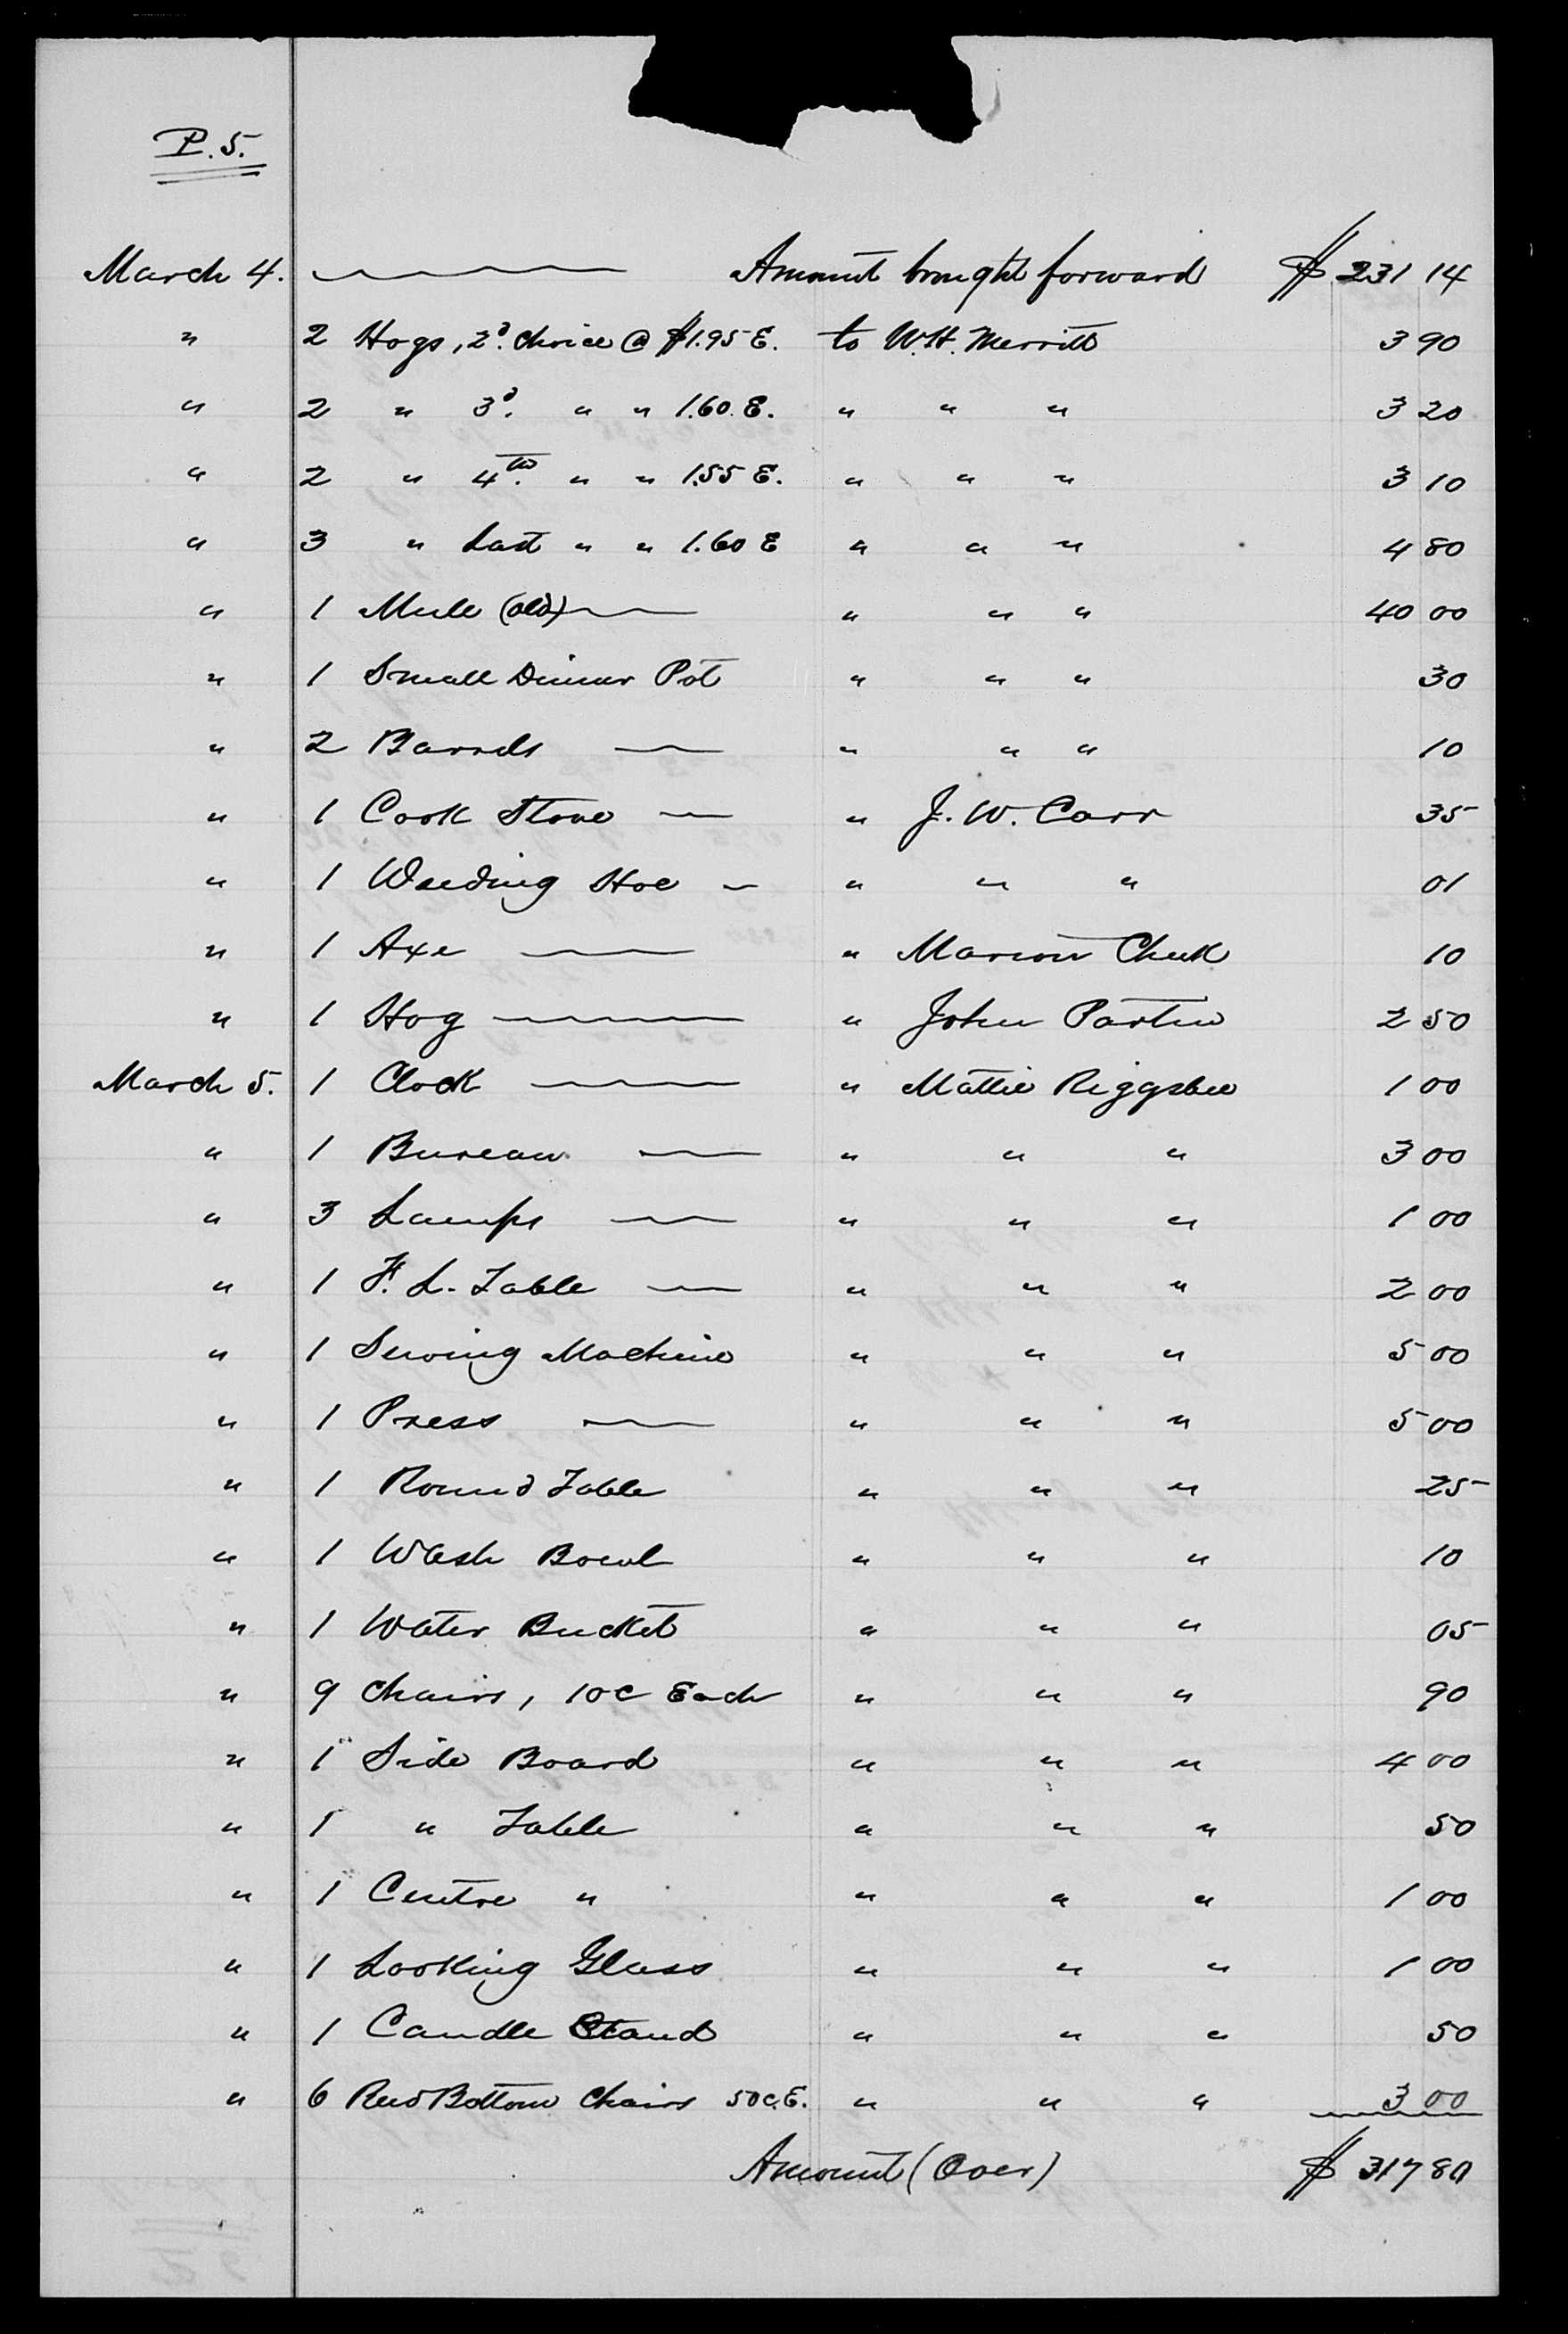 P. 5.
March 4. Amount brought forward $ 231 14
" 2 Hogs, 2d. choice @ $1.95 E. to W.H. Merritt 3 90
" 2 " 3d. " " 1.60. E. " " " 3 20
" 2 " 4th. " " 1.55 E. " " " 3 10
" 3 " Last " " 1.60 E " " " 4 80
" 1 Mule (old) " " " 40 00
" 1 Small Dinner Pot " " " 30
" 2 Barrels " " " 10
" 1 Cook Stove " J. W. Carr 35
" 1 Weeding Hoe " " " 01
" 1 Axe " Marion Cheek 10
" 1 Hog " John Partin 2 50
March 5. 1 Clock " Mattie Riggsbee 1 00
" 1 Bureau " " " 3 00
" 3 Lamps " " " 1 00
" 1 F. L. Table " " " 2 00
" 1 Sewing Machine " " " 5 00
" 1 Press " " " 5 00
" 1 Round Table " " " 25
" 1 Wash Bowl " " " 10
" 1 Water Bucket " " " 05
" 9 Chairs, 10c Each " " " 90
" 1 Side Board " " " 4 00
" 1 " Table " " " 50
" 1 Centre " " " " 1 00
" 1 Looking Glass " " " 1 00
" 1 Candle Stand " " " 50
" 6 Reed Bottom Chairs 50c.E. " " " 3 00
Amount (Over) $ 317 80